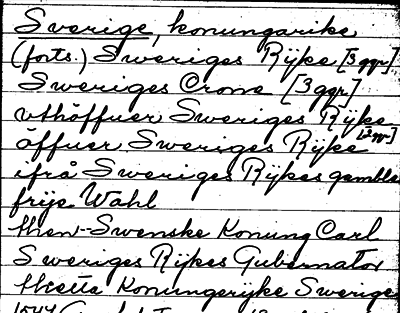 Sverige, konungarike
(forts.) Sweriges Rijke [5 ggr]
Sweriges Crone [3 ggr]
vthöffuer Sweriges Rijke
öffuer Sweriges Rijke [2 ggr]
ifrå Sweriges Rijkes gamble
frije Wahl
then Swenske Konung Carl
Sweriges Rijkes Gubernator
thetta Konungerijke Sweriges
1544